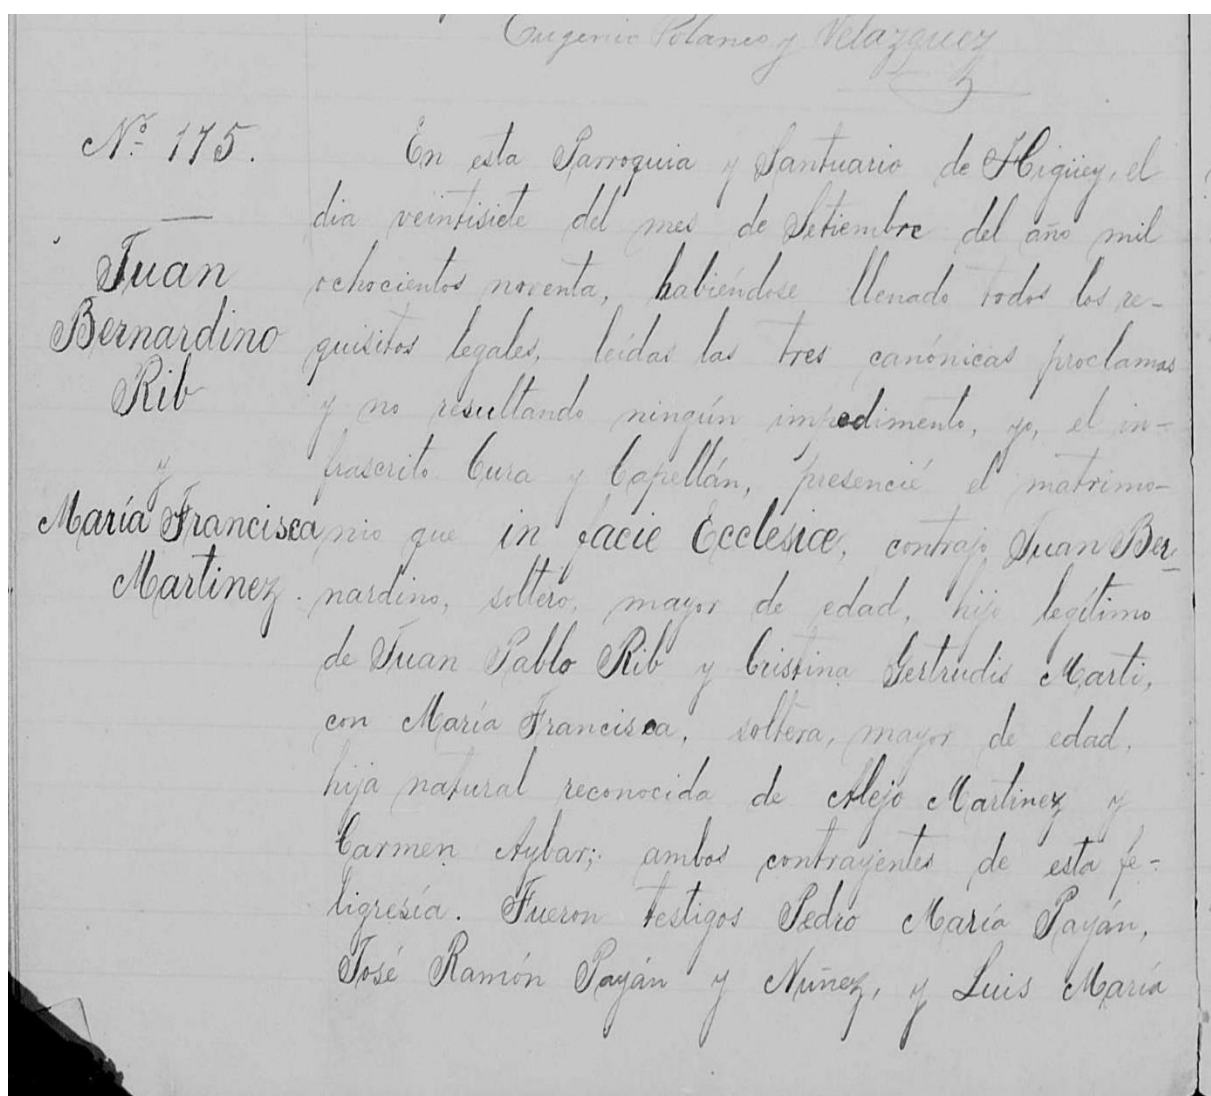 Eugenio Polanco y Velazquez
Nº 175.
Juan
Bernardino
Rib
y
María Francisca
Martinez.
En esta Parroquia y Santuario de Higüey, el
dia veintisiete del mes de Setiembre del año mil
ochocientos noventa, habiéndose llenado todos los re-
quisitos legales, leídas las tres canónicas proclamas
y no resultando ningún impedimento, yo, el in-
frascrito Cura y Capellán, presencié el matrimo-
nio que in facie Ecclesiæ, contrajo Juan Ber-
nardino, soltero, mayor de edad, hijo legítimo
de Juan Pablo Rib y Cristina Gertrudis Marti,
con María Francisca, soltera, mayor de edad,
hija natural reconocida de Alejo Martinez y
Carmen Aybar; ambos contrayentes de esta fe-
ligresía. Fueron testigos Pedro María Payán,
José Ramón Payán y Nuñez, y Luis María